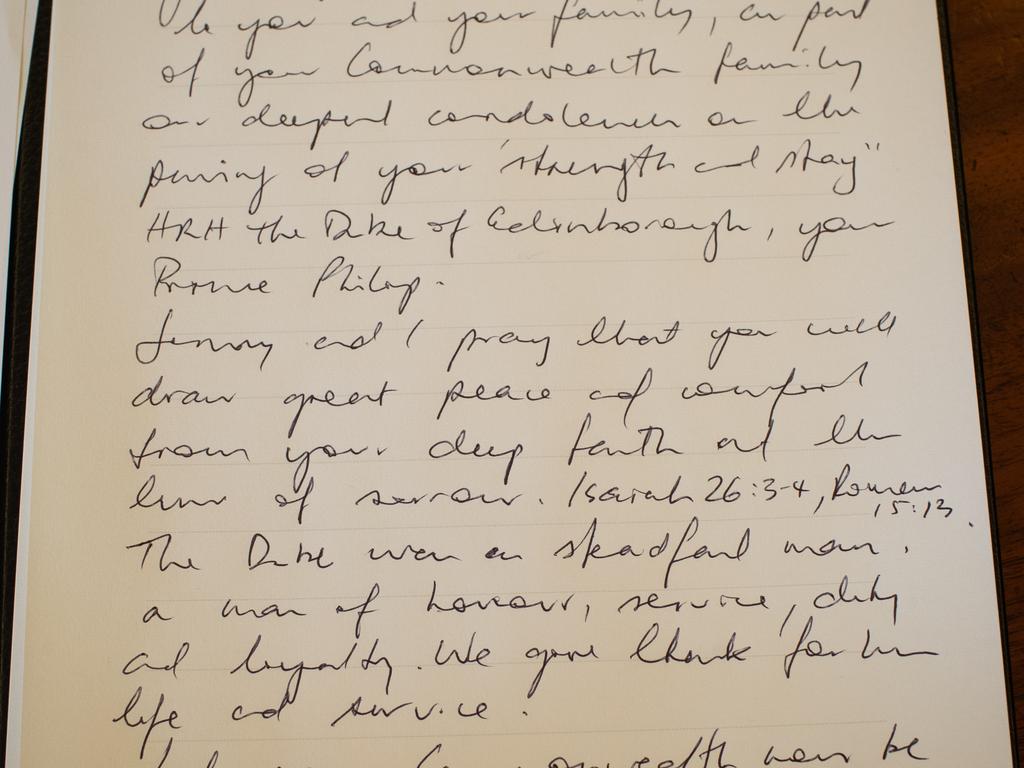 to you and your family, as part
of your Commonwealth family
our deepest condolences on the
passing of your "strength and stay"
HRH the Duke of Edinborough, your
Prince Philip.
Jenny and I pray that you will
draw great peace and comfort
from your deep faith at this
time of sorrow. Isaiah 26:3-4, Romans
15:13.
The Duke was a steadfast man,
a man of honour, service, duty
and loyalty. We give thanks for his
life and service.
Commonwealth may be